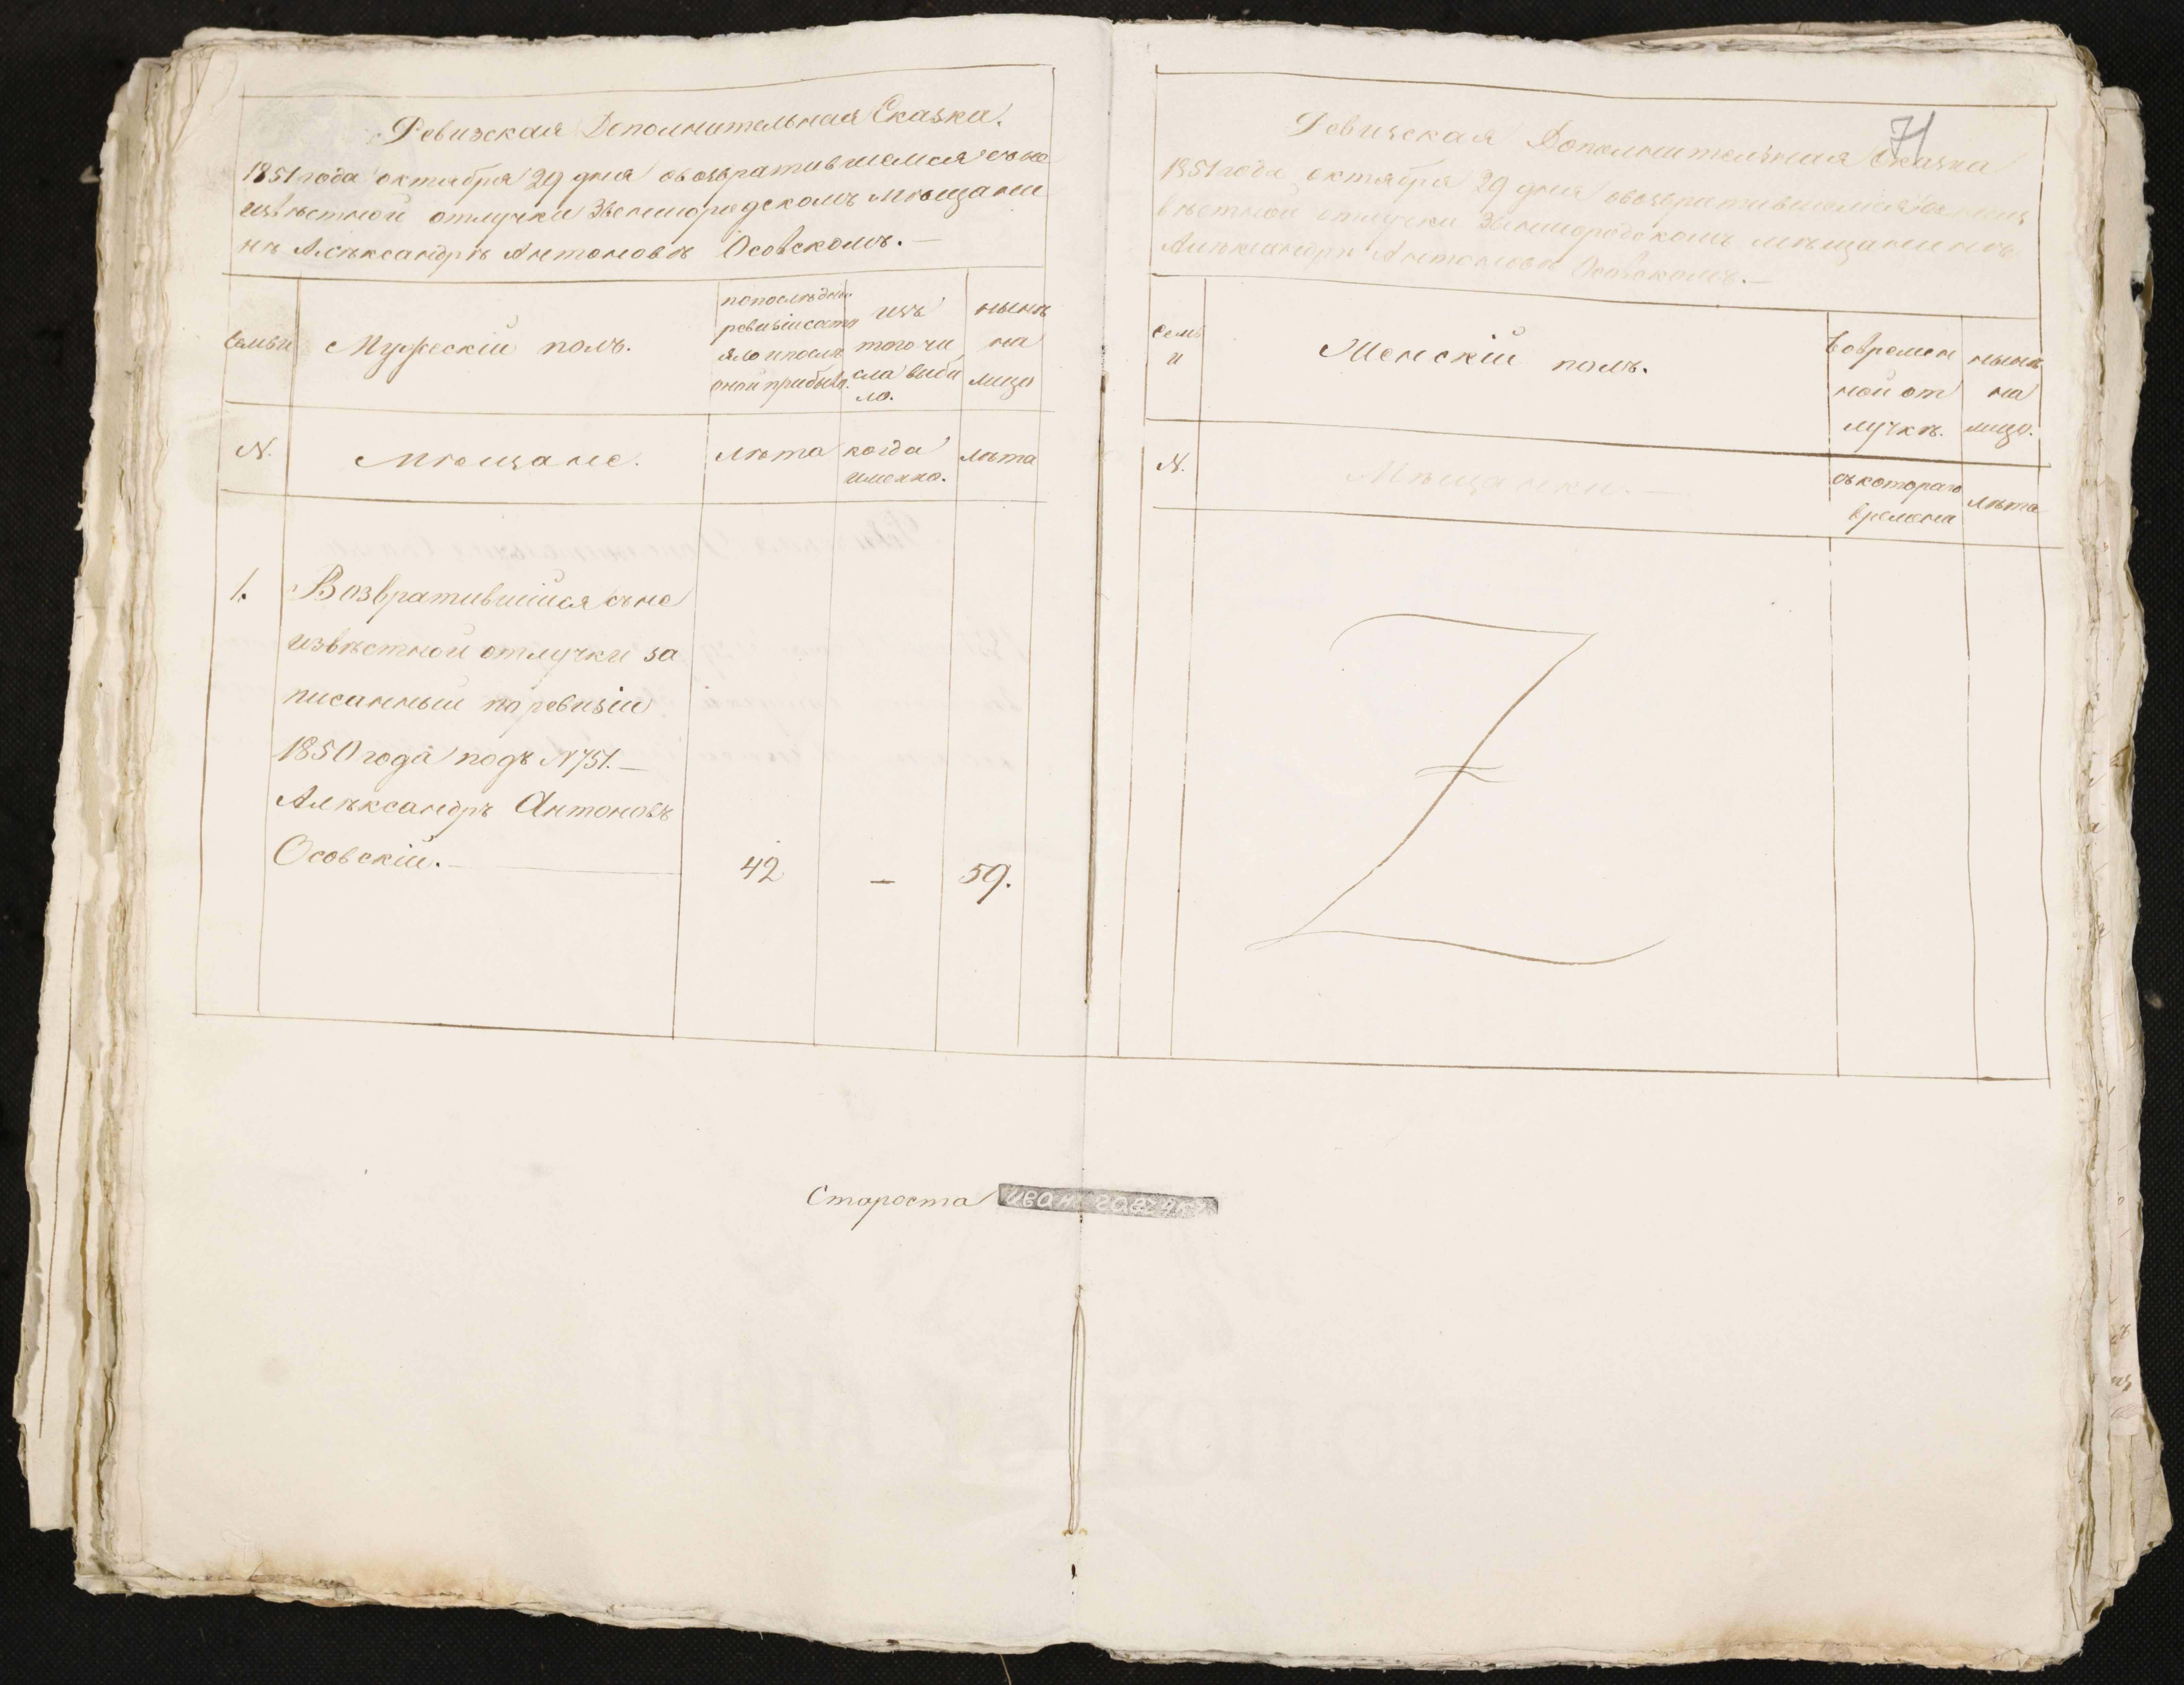 Ревизская Дополнительная Сказка.
1851 года октября 29 дня овозвратившемся съне
извѣстной отлучки Звенигородскомъ мѣщани
нѣ Алѣксандрѣ Антоновѣ Осовскомъ.—
Семьи
Мужескій полъ.
попослѣдней
ревизіи состо
яло и послѣ
оной прибыло.
изъ
того чи
сла выбы
ло.
нынѣ
на
лицо
N.
Мѣщане.
лѣта
когда
именно.
лѣта
1.
Возвратившійся съне
извѣстной отлучки за
писанный поревизіи
1850 года подъ N 751.—
Алѣксандръ Антоновъ
Осовскій.—
42
—
59.
71
Ревизская Дополнительная Сказка
1851 года октября 29 дня овозвратившемся съ
вѣстной отлучки Звенигородскомъ мѣщанинѣ
Алѣксандрѣ Антоновѣ Осовскомъ.—
Семь
и
Женскій полъ.
Вовремен
ной от
лучкѣ.
нынѣ
на
лицо.
N.
Мѣщанки.—
съкотораго
времена
лѣта
Староста